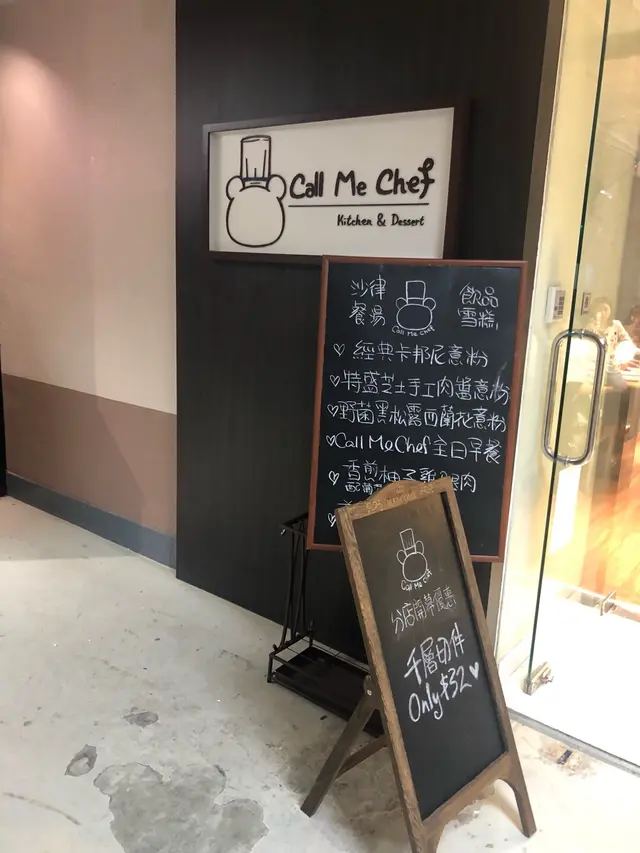 Call Me Chef
Kitchen & Dessert
沙律
餐湯
Call Me Chef
飲品
雪糕
♡ 經典卡邦尼意粉
♡ 特盛芝士手工肉醬意粉
♡ 野菌黑松露西蘭花意粉
♡ Call Me Chef 全日早餐
♡ 香煎柚子雞 肉
Call Me Chef
分店開幕優惠
千層切件
Only $32 ♥